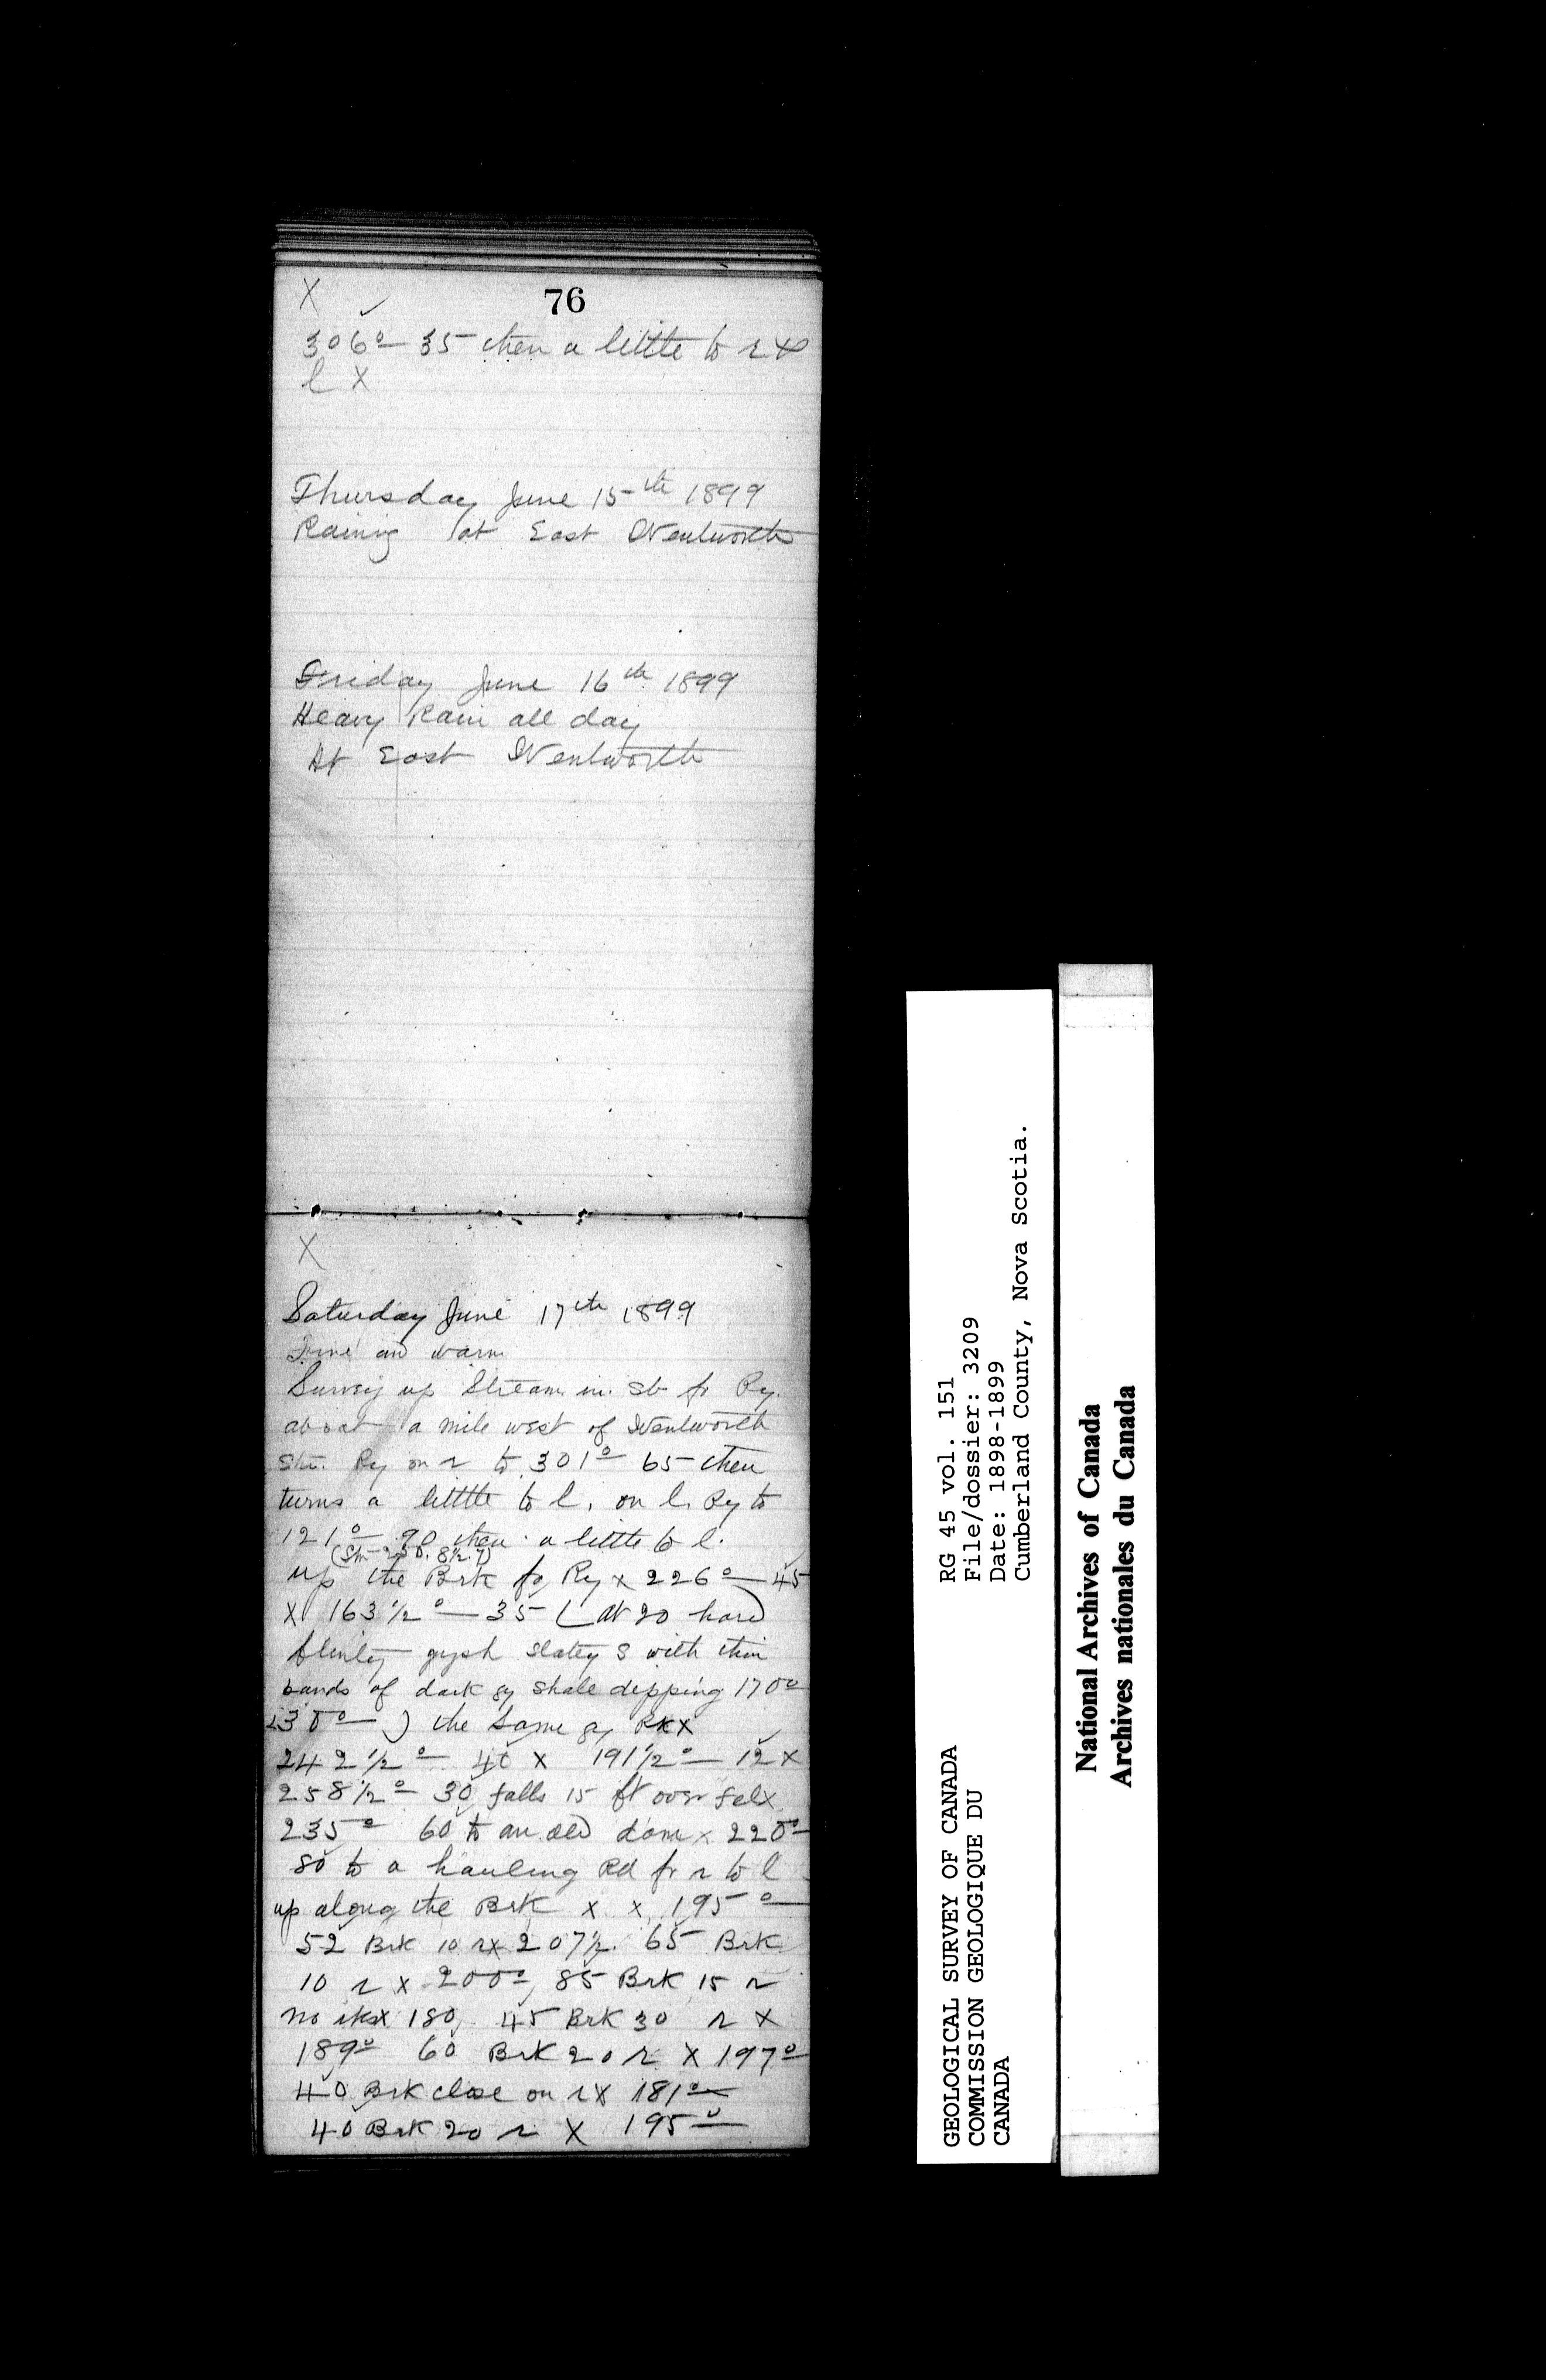 X
76
306° 35 then a little to r &
l X
Thursday June 15th 1899
Raining at East Wentworth
Friday June 16th 1899
Heavy Rain all day
At East Wentworth
X
Saturday June 17th 1899
Fine and warm
Survey up Stream in. St fr Ry.
about a mile west of Wentworth
Stn. Ry on r to 301° 65 then
turns a little to l. on l. Ry to
121° 90 then a little to l.
up the Brk fr Ry x 226° 45
X 163 1/2° 35 (at 20 hard
flinty gysh slatey S with thin
bands of dark gy shale dipping 170°
) the same gy Rk x
242 1/2° 40 x 191 1/2° 12 x
258 1/2° 30 falls 15 ft over fel x
235° 60 to an old dam x 220°
80 to a hauling Rd fr r to l
up along the Brk x x 195°
52 Brk 10 r x 207 1/2 65 Brk
10 r x 200° 85 Brk 15 r
no rks x 180 45 Brk 30 r X
189° 60 Brk 20 r X 197°
40 Brk close on r X 181°
40 Brk 20 r X 195°
RG 45 vol. 151
File/dossier: 3209
Date: 1898-1899
Cumberland County, Nova Scotia.
GEOLOGICAL SURVEY OF CANADA
COMMISSION GEOLOGIQUE DU
CANADA
National Archives of Canada
Archives nationales du Canada